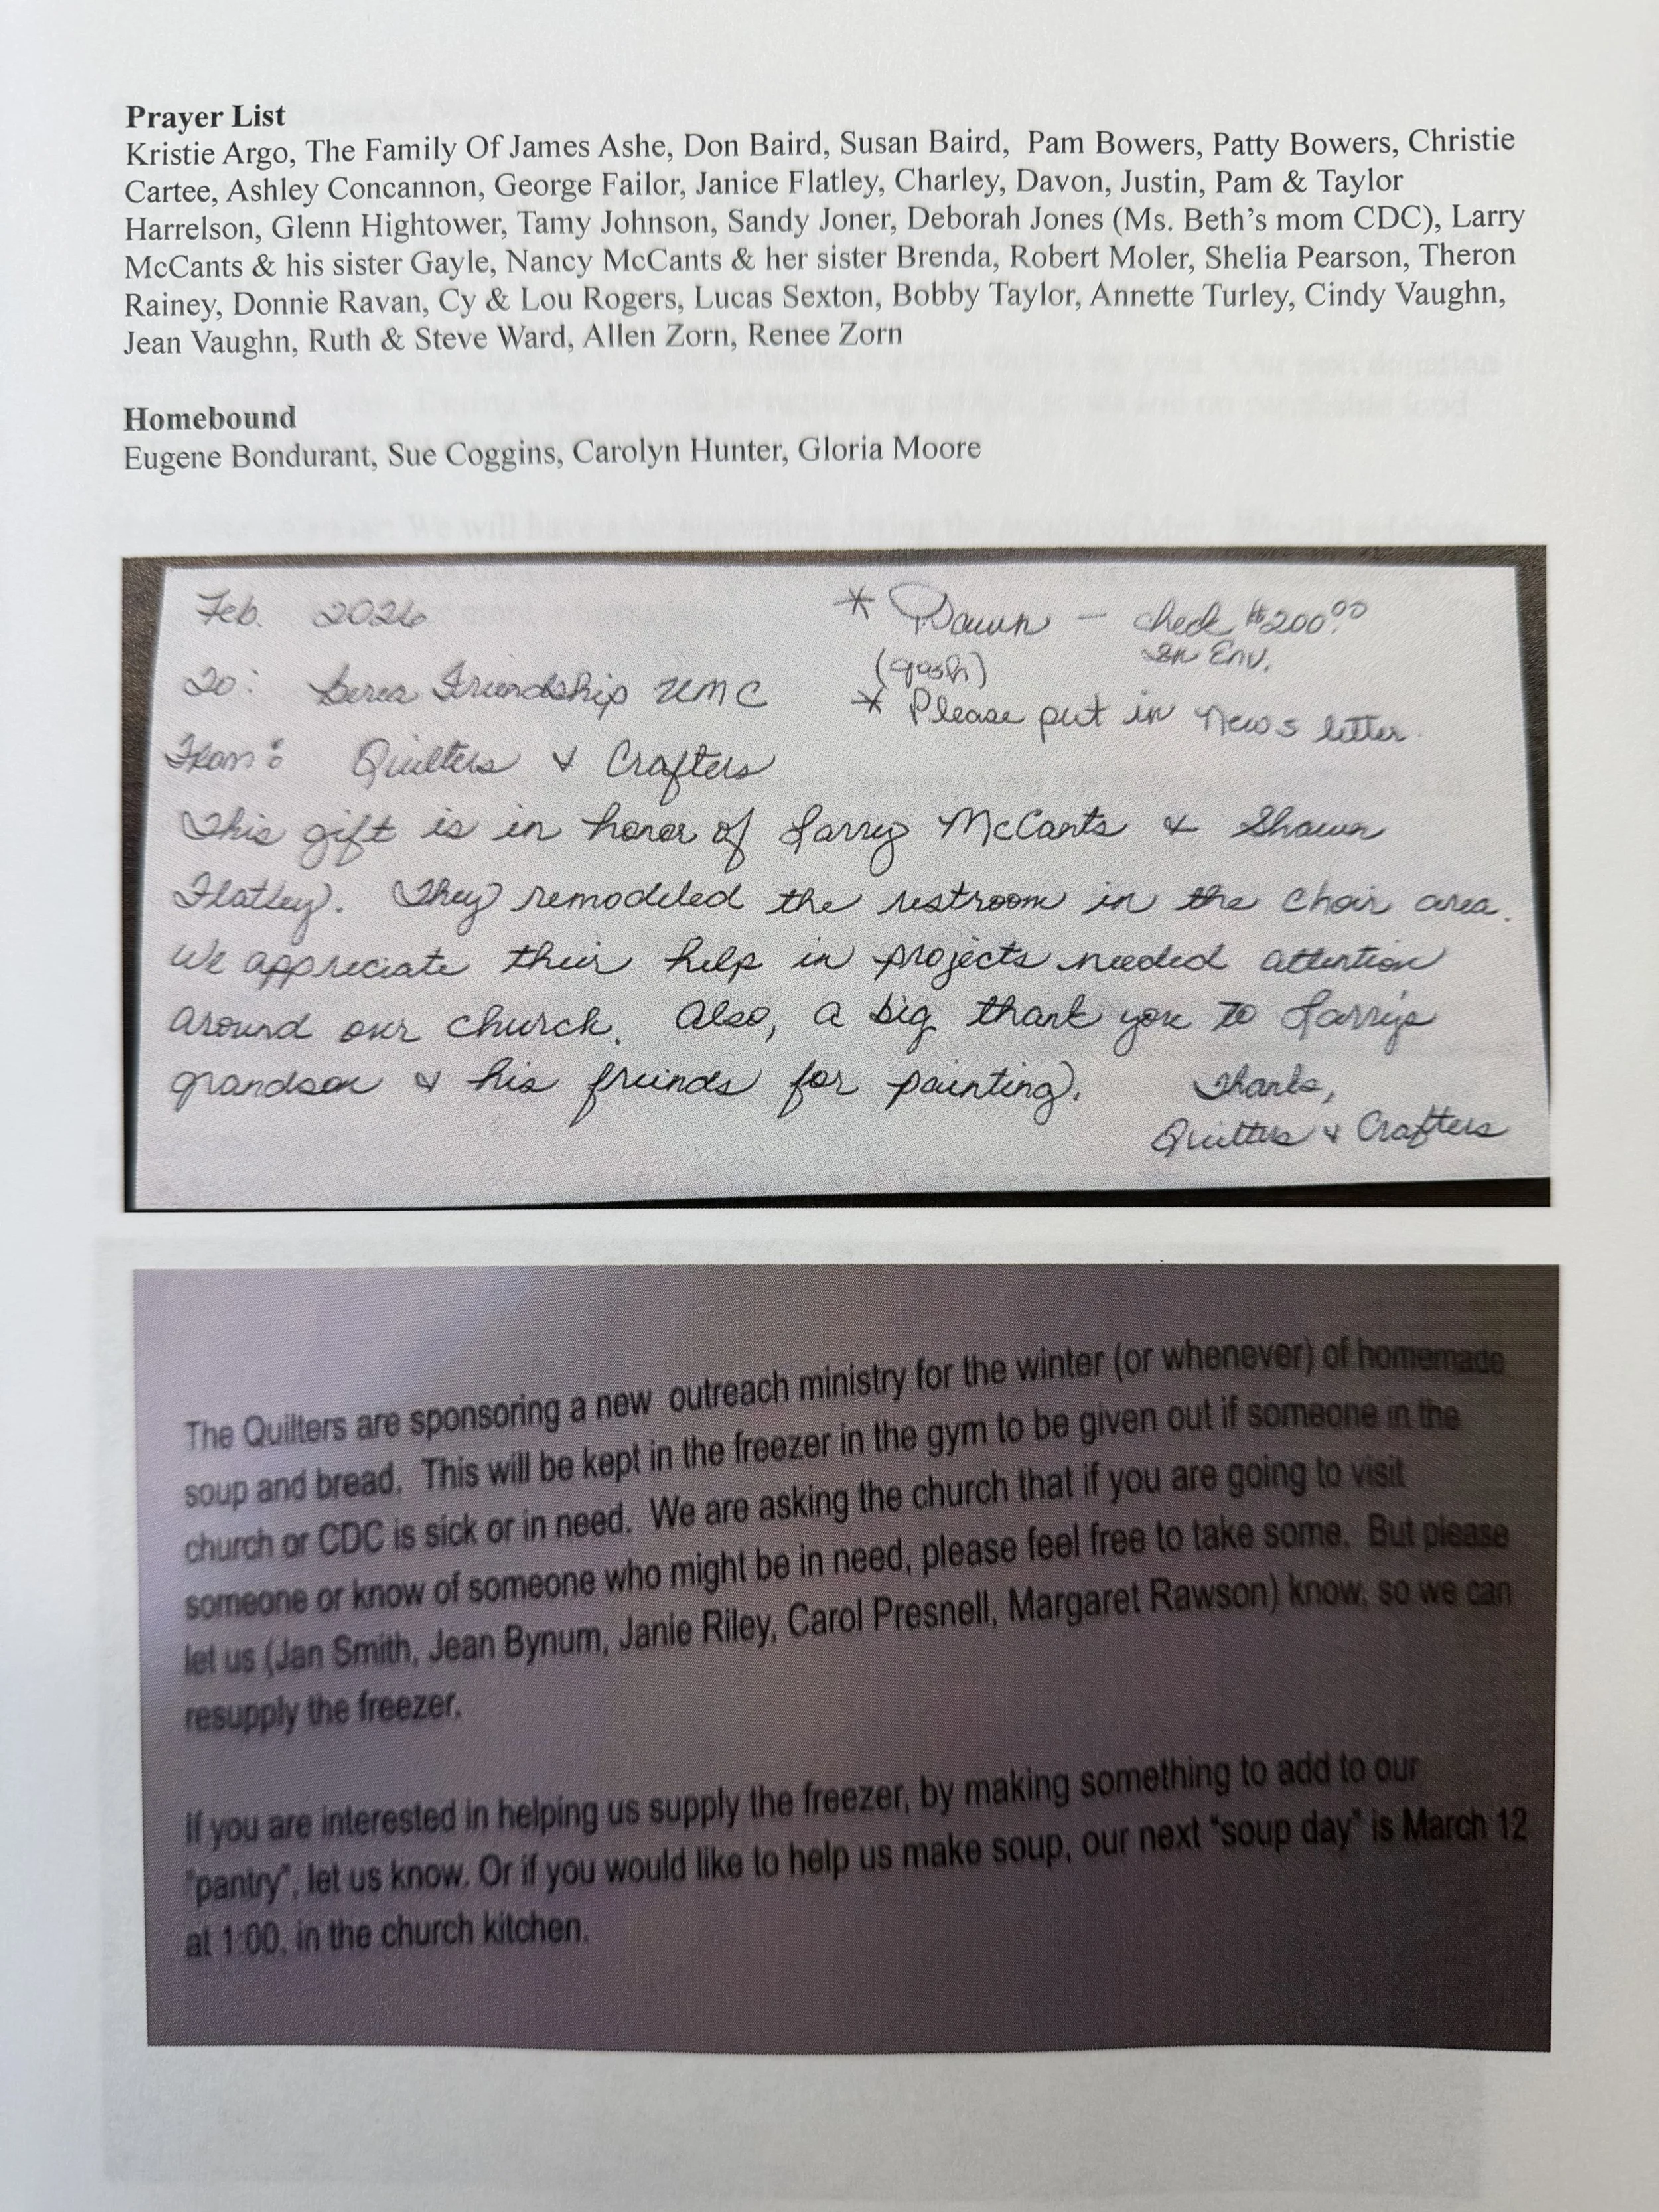 Prayer List
Kristie Argo, The Family Of James Ashe, Don Baird, Susan Baird, Pam Bowers, Patty Bowers, Christie
Cartee, Ashley Concannon, George Failor, Janice Flatley, Charley, Davon, Justin, Pam & Taylor
Harrelson, Glenn Hightower, Tamy Johnson, Sandy Joner, Deborah Jones (Ms. Beth's mom CDC), Larry
McCants & his sister Gayle, Nancy McCants & her sister Brenda, Robert Moler, Shelia Pearson, Theron
Rainey, Donnie Ravan, Cy & Lou Rogers, Lucas Sexton, Bobby Taylor, Annette Turley, Cindy Vaughn,
Jean Vaughn, Ruth & Steve Ward, Allen Zorn, Renee Zorn
Homebound
Eugene Bondurant, Sue Coggins, Carolyn Hunter, Gloria Moore
Feb. 2026
* Dawn – check $200.00
In Env.
To: Berea Friendship UMC
* Please put in News letter.
From: Quilters & Crafters
This gift is in honor of Larry McCants & Shawn
Flatley. They remodeled the restroom in the choir area.
We appreciate their help in projects needed attention
around our church. Also, a big thank you to Larry's
grandson & his freinds for painting.
Thanks,
Quilters & Crafters
The Quilters are sponsoring a new outreach ministry for the winter (or whenever) of homemade
soup and bread. This will be kept in the freezer in the gym to be given out if someone in the
church or CDC is sick or in need. We are asking the church that if you are going to visit
someone or know of someone who might be in need, please feel free to take some. But please
let us (Jan Smith, Jean Bynum, Janie Riley, Carol Presnell, Margaret Rawson) know, so we can
resupply the freezer.
If you are interested in helping us supply the freezer, by making something to add to our
"pantry", let us know. Or if you would like to help us make soup, our next "soup day" is March 12
at 1:00, in the church kitchen.